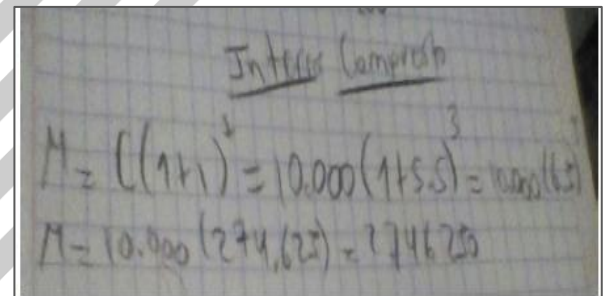 Interes Compuesto
M = C(1+i)^t = 10.000(1+5.5)^3 = 10.000(6.5)^3
M = 10.000(274,625) = 2746250